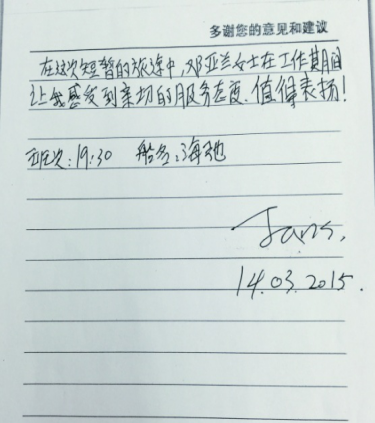 多谢您的意见和建议
在这次短暂的旅途中，邓亚兰女士在工作其期间
让我感受到亲切的服务态度、值得表扬！
班次：19:30 船名：海驰
Jans,
14.03.2015.